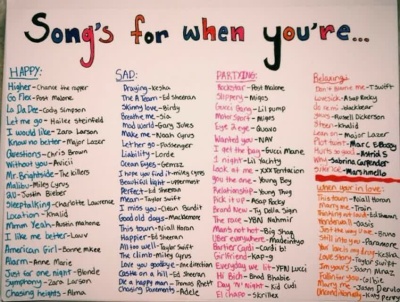 Song's for when you're...
HAPPY:
Higher - Chance the rapper
Go Flex - Post Malone
La Da Dee - Cody Simpson
Let me go - Hailee Steinfeld
I would like - Zara Larson
Know no better - Major Lazer
Questions - Chris Brown
Without you - Avicii
Mr. Brightside - The killers
Malibu - Miley Cyrus
All - Justin Bieber
Sleeptalking - Charlotte Lawrence
Location - Khalid
Mmm Yeah - Austin Mahone
I like me better - Lauv
American Girl - Bonnie McKee
Alarm - Anne Marie
Just for one night - Blonde
Symphony - Zara Larson
Chasing heights - Alma
SAD:
Praying - Kesha
The A Team - Ed Sheeran
Skinny love - Birdy
Breathe me - Sia
Mad world - Gary Jules
Make me - Noah Cyrus
Let her go - Passenger
Liability - Lorde
Ocean Eyes
I hope you find it - miley cyrus
Beautiful light
Perfect - Ed Sheeran
Mean - Taylor Swift
I miss you - Clean Bandit
Good old days - Macklemore
This town - Niall Horan
Happier - Ed Sheeran
All to well - Taylor Swift
The climb - miley cyrus
Love you goodbye - one direction
Castle on a hill - Ed Sheeran
Die a happy man - Thomas Rhett
Chasing Pavements - Adele
PARTYING:
Rockstar - Post Malone
Slippery - Migos
Gucci Gang - Lil pump
Motor Sport - Migos
Eye 2 eye - Quavo
Wanted you - NAV
I get the bag - Gucci Mane
1 night - Lil Yachty
Look at me - XXXTentacion
you the one - Young Boy
Relationship - Young Thug
Pick it up - Asap Rocky
Brand New - Ty Dolla Sign
The race - YBN
Man's not hot - Big Shaq
Uber everywhere - Madeintyo
Bartier Cardi - Cardi b!
Girlfriend - Kap-g
Everyday we lit - YFN Lucci
Hi Bich - Bhad Bhabie
Day n' night - Kid Cudi
El chapo - Skrillex
Relaxing
Don't blame me - T.Swift
Lovesick - Asap Rocky
idealekear
Silence
Khalid
Lean on - Major Lazer
Marc E Bassy
Hurts so good - Astrid S
Why - Sabrina Carpenter
Silence - Marshmello
When your in love:
This town - Niall Horan
Marry me - Train
Thinking out loud - Ed Sheeran
Wonderwall - Oasis
Just the way you are - Bruno
Still into you - Paramore
Your love is my drug - Kesha
Love story - Taylor Swift
I'm yours - Jason Mraz
Falling for you - Colbie
Marry me - Jason Derulo